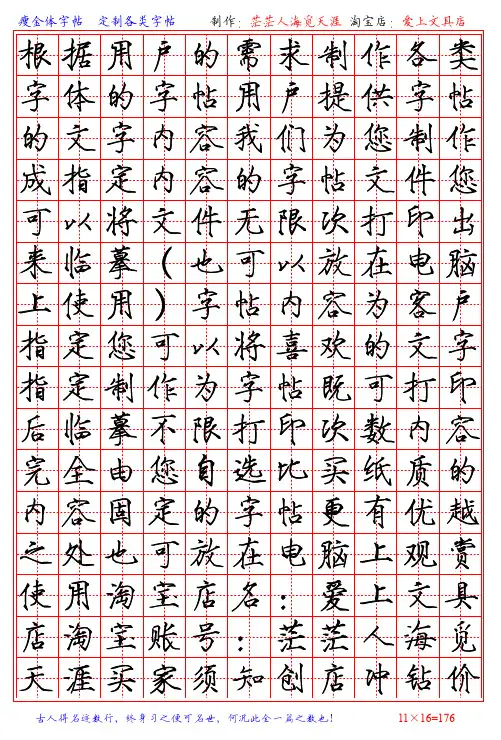 瘦金体字帖 定制各类字帖 制作：茫茫人海觅天涯 淘宝店：爱上文具店
根据用户的需求制作各类
字体的字帖用户提供字帖
的文字内容我们为您制作
成指定内容的字帖文件您
可以将文件无限次打印出
来临摹（也可以放在电脑
上使用）字帖内容为客户
指定您可以将喜欢的文字
指定制作为字帖既可打印
后临摹不限打印次数内容
完全由您自选比买纸质的
内容固定的字帖更有优越
之处也可放在电脑上观赏
使用淘宝店名：爱上文具
店淘宝账号：茫茫人海觅
天涯买家须知创店冲钻价
古人得名迹数行，终身习之便可名世，何况此全一篇之数也！ 11×16=176